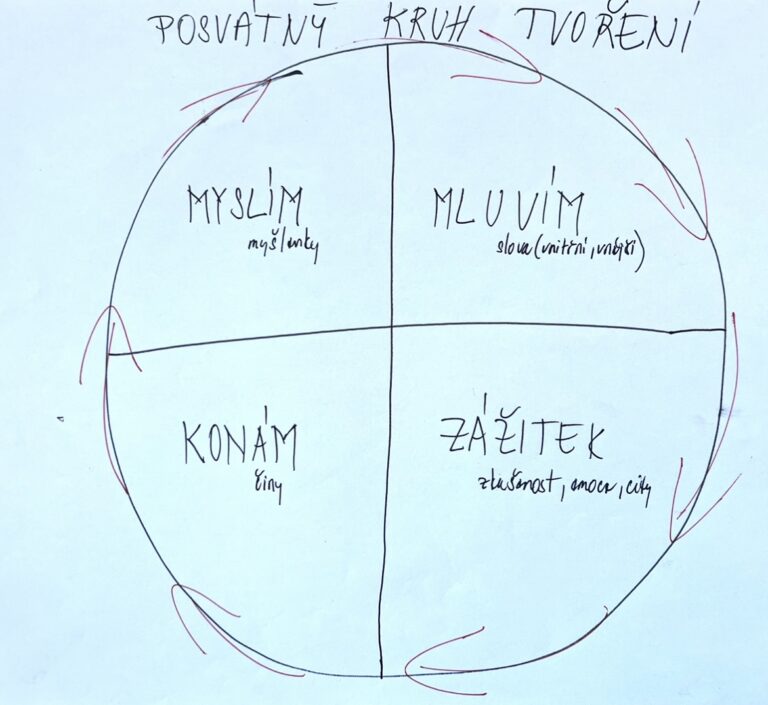 POSVÁTNÝ KRUH TVOŘENÍ
MYSLÍM
myšlenky
MLUVÍM
slova (vnitřní, vnější)
KONÁM
činy
ZÁŽITEK
zkušenost, emoce, city